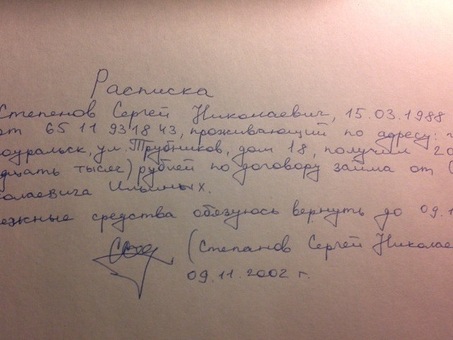 Расписка
Степанов Сергей Николаевич, 15.03.1988
65 11 931843, проживающий по адресу: г
оуральск, ул. Трубников, дом 18, получил 20
дцать тысяч) рублей по договору займа от (
колаевича Ильиных.
ежные средства обязуюсь вернуть до 09.1
(Степанов Сергей Николае
09.11.2002 г.